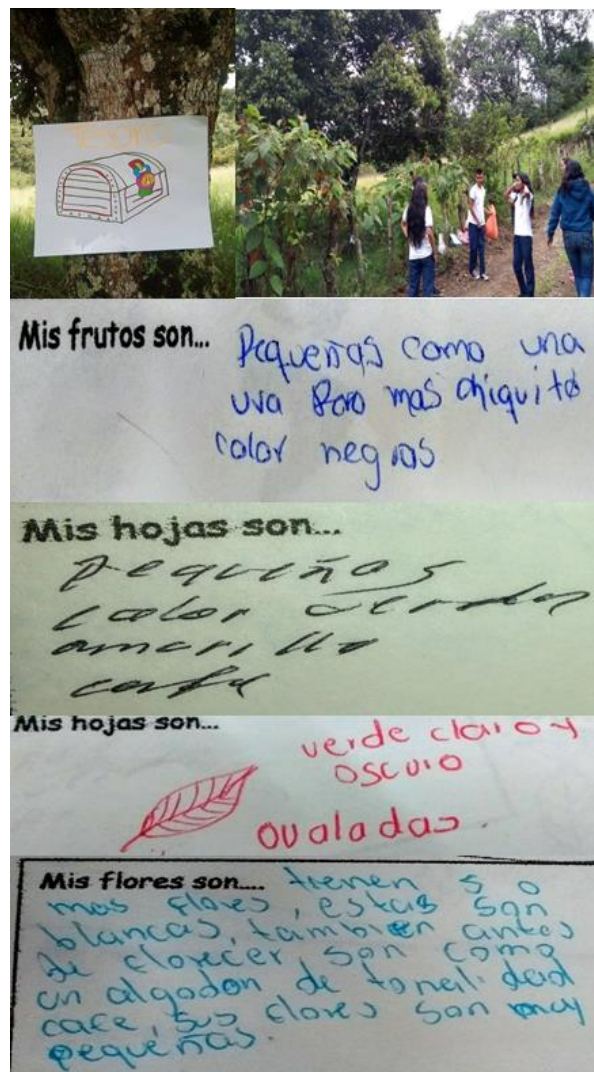 Tesoro
Mis frutos son... Pequeñas como una
uva Pero mas chiquito
color negras
Mis hojas son...
pequeñas
color verde
amarillo
cafe
Mis hojas son...
verde claro y
oscuro
ovaladas.
Mis flores son.... tienen 5 o
mas flores, estas son
blancas, tambien antes
de florecer son como
un algodon de tonalidad
cafe, sus flores son muy
pequeñas.